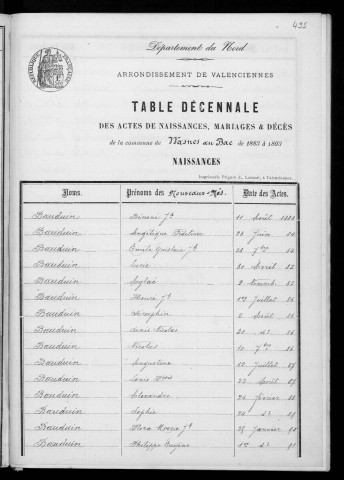 495
Département du Nord
ARRONDISSEMENT DE VALENCIENNES
TABLE DÉCENNALE
DES ACTES DE NAISSANCES, MARIAGES & DÉCÈS
de la commune de Wasnes au Bac de 1883 à 1893
NAISSANCES
Noms. Prénoms des Nouveaux-Nés. Date des Actes.
Bauduin Jh 11 Août
Bauduin Angélique 28 Juin 84
Bauduin Emile Ghislain Jh 28 7bre 84
Bauduin Lucie 20 Avril
Bauduin Aglaé 2 Novemb.
Bauduin Henri Jh 1er Juillet 86
Bauduin Séraphin 2 Août 86
Bauduin Louis Nicolas 20 do
Bauduin Nicolas 10 7bre 86
Bauduin Augustine 12 Juillet
Bauduin Louis 22 Août
Bauduin Alexandre 24 Février
Bauduin Sophie 24 do
Bauduin Flora Maria Jh 25 Janvier 90
Bauduin Philippe Eugène 1er do